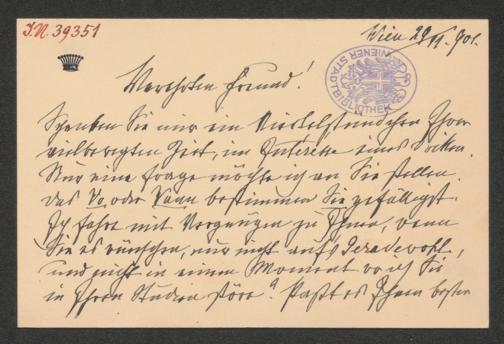 I.N. 39351
Wien 29/XI. 901.
WIENER STADTBIBLIOTHEK
Verehrter Freund!
Schenken Sie mir ein Viertelstündchen Ihrer
vielbewegten Zeit, im Interesse eines Dritten.
Nur eine Frage möchte ich an Sie stellen.
Das Wo oder Wann bestimmen Sie gefälligst.
Ich fahre mit Vergnügen zu Ihnen, wenn
Sie es wünschen, nur nicht aufs Geradewohl,
und nicht in einem Moment wo ich Sie
in Ihren Studien störe. Paßt es Ihnen besser